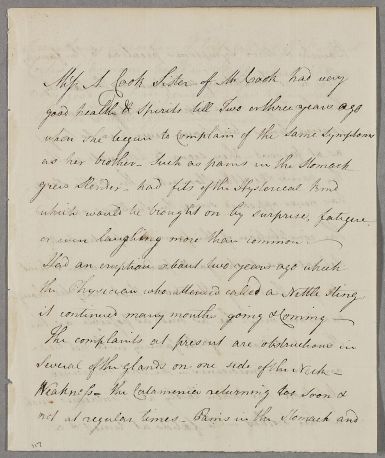 Miss A. Cook Sister of Mr Cook had very
good health & Spirits till Two or three years ago
when she began to Complain of the Same Symptoms
as her brother – Such as pains in the Stomach
grew Slender – had fits of the Hysterical kind
which would be brought on by surprise, fatigue,
or even laughing more than common –
Had an eruption about two years ago which
the Physician who attended called a Nettle Sting
it continued many months going & Coming –
The complaints at present are obstructions in
Several of the glands on one side of the Neck –
Weakness – the Catamenia returning too soon &
not at regular times – Pains in the Stomach and